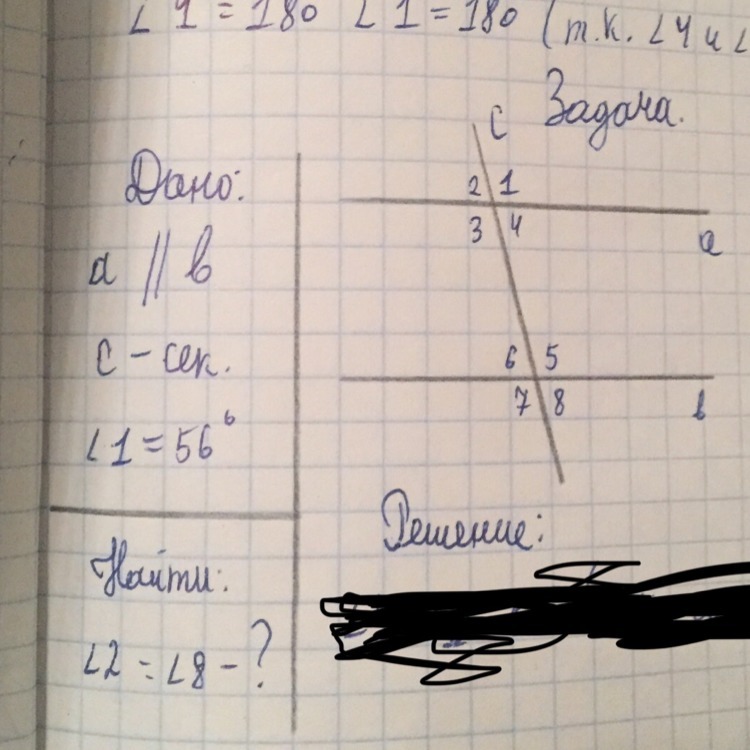 ∠1 = 180 ∠1 = 180 (т.к. ∠4 и ∠
Задача.
Дано:
a ∥ b
c - сек.
∠1 = 56°
Найти:
∠2 = ∠8 - ?
c
2 1
3 4
a
6 5
7 8
b
Решение: